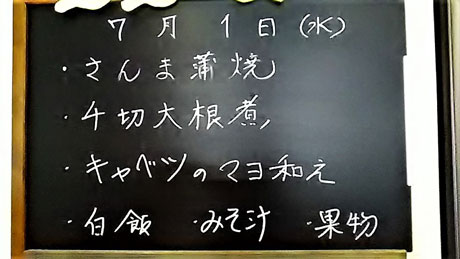 7月1日(水)
・さんま蒲焼
・千切大根煮
・キャベツのマヨ和え
・白飯 ・みそ汁 ・果物